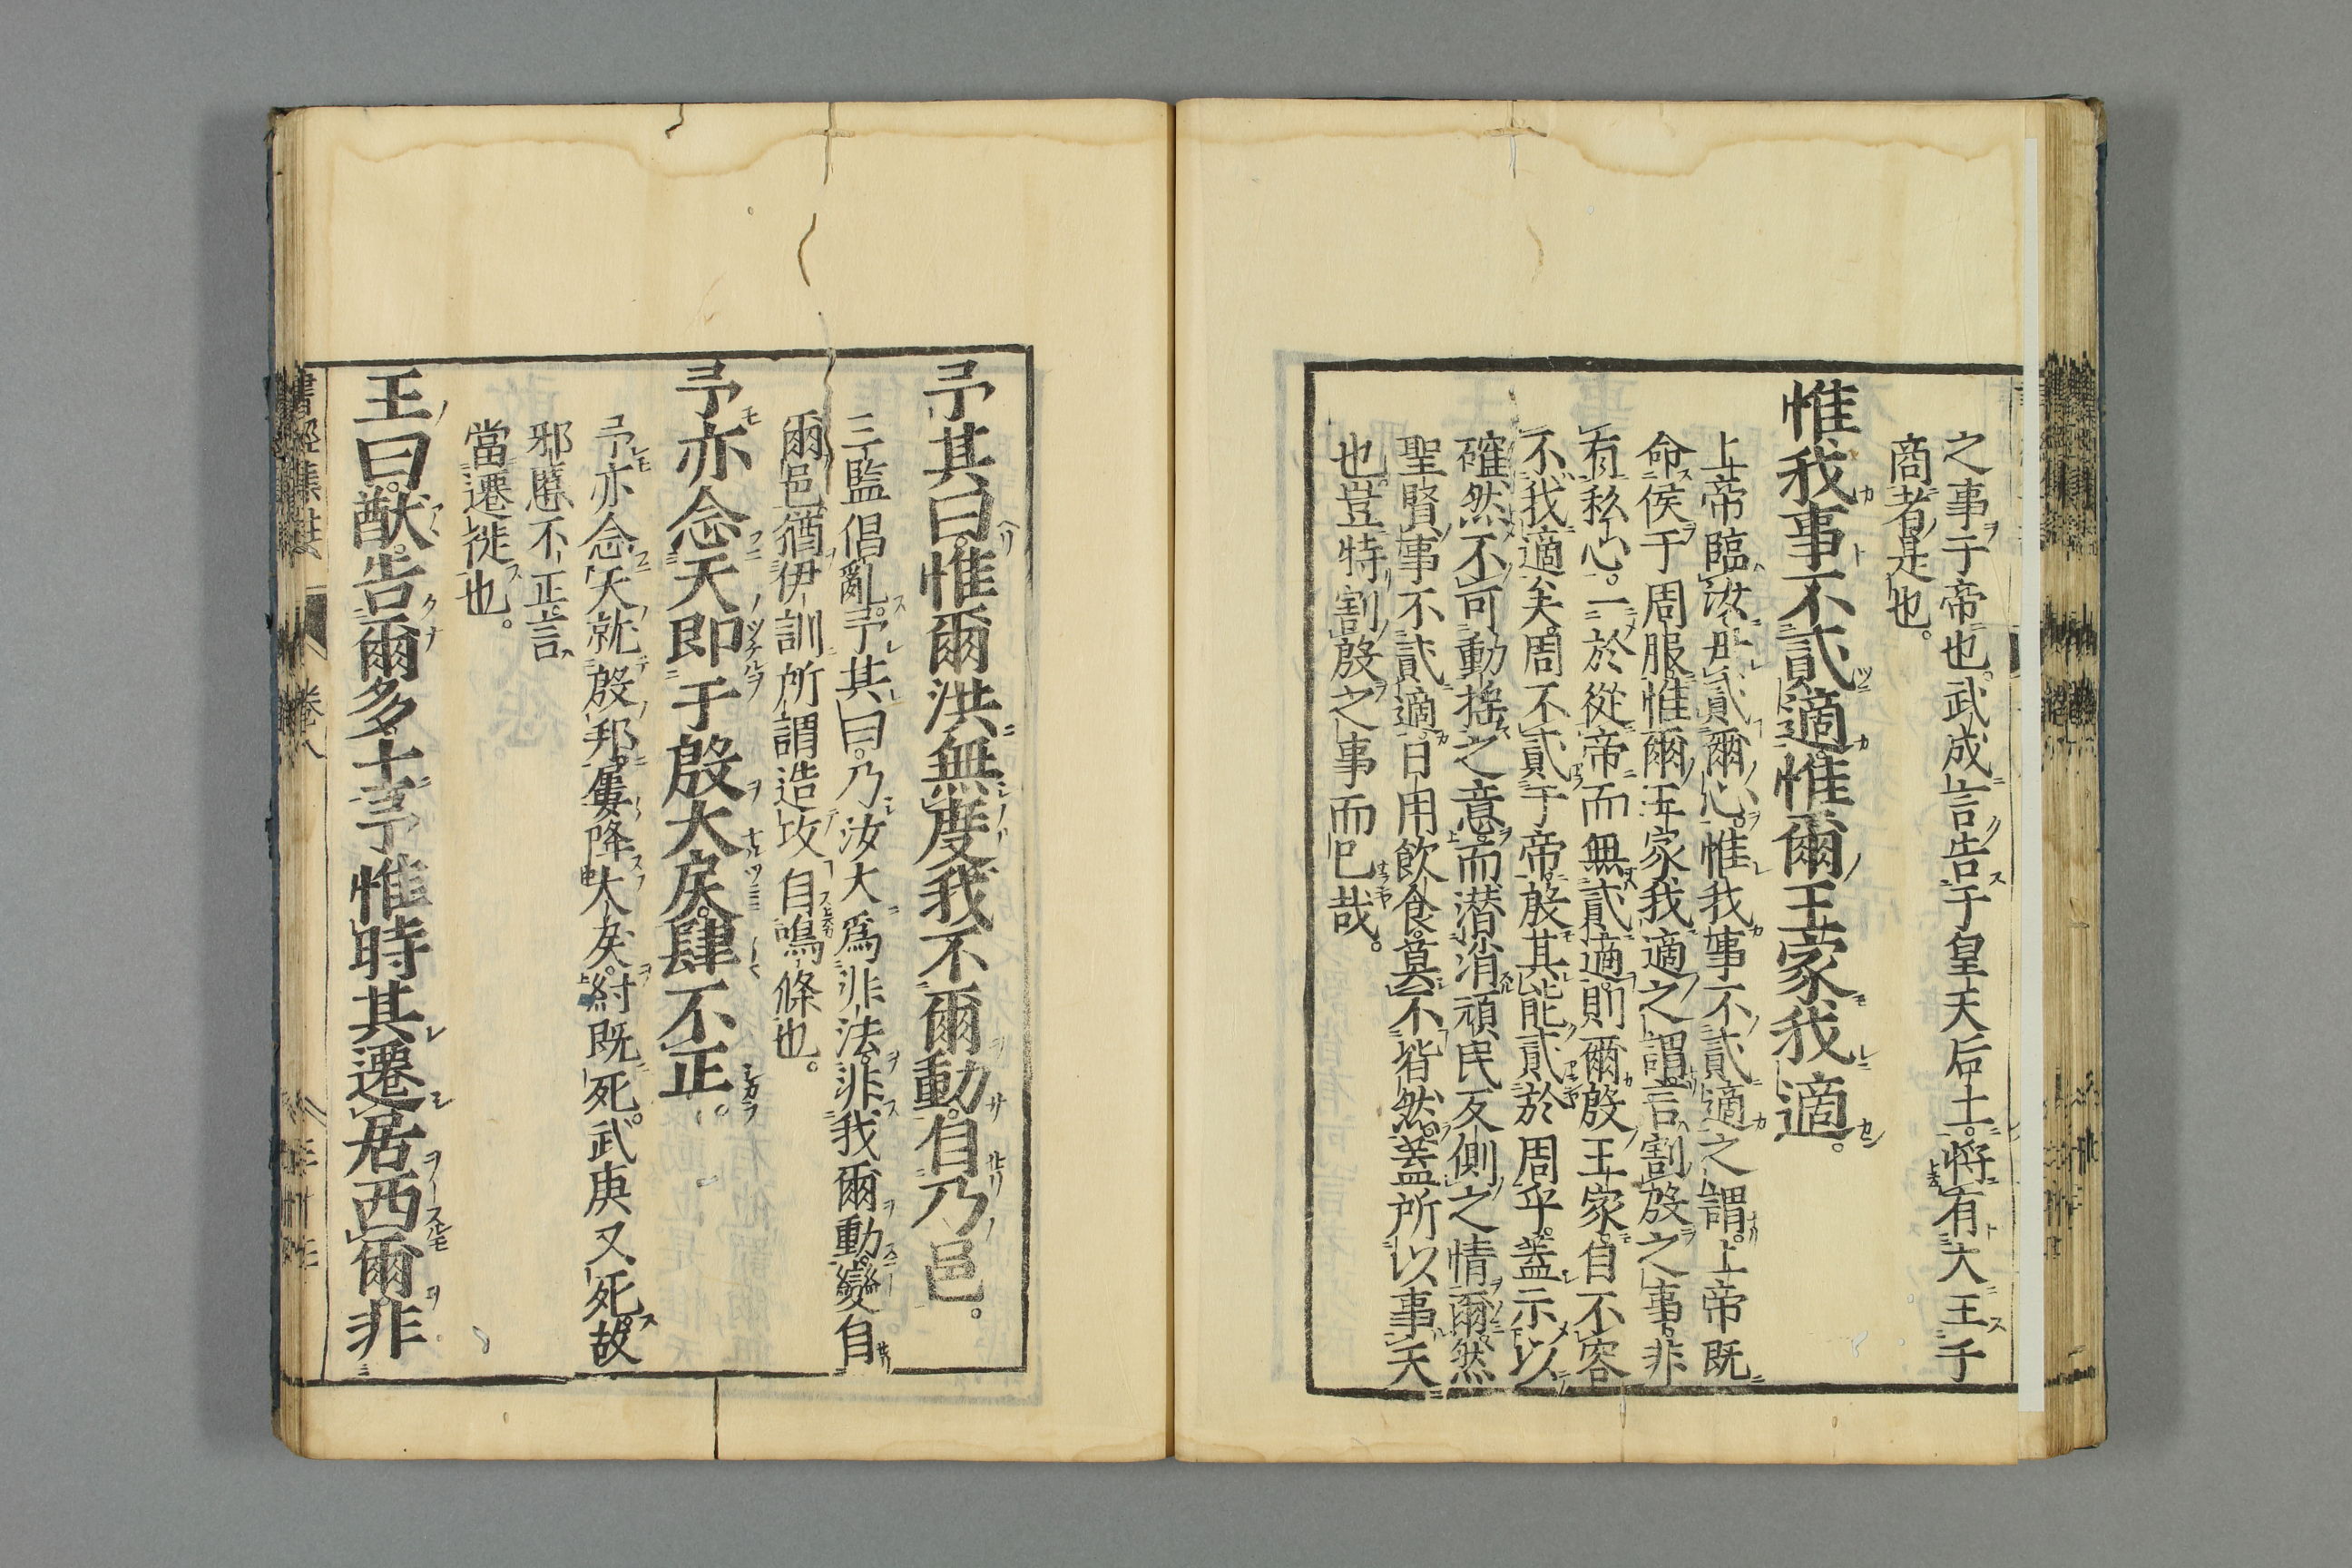 之事于帝也。武成言告于皇天后土。將有大正于
商者是也。
惟我事不貳適。惟爾王家我適。
上帝臨汝毋貳爾心。惟我事不貳適之謂。上帝既
命侯于周服。惟爾王家我適之謂。言割殷之事。非
有私心。一於從帝而無貳適。則爾殷王家。自不容
不我適矣。周不貳于帝。殷其能貳於周乎。蓋示以
確然不可動搖之意。而潜消頑民反側之情爾。然
聖賢事不貳適。日用飲食。莫不皆然。蓋所以事天
也。豈特割殷之事而已哉。
予其曰。惟爾洪無度。我不爾動。自乃邑。
三監倡亂。予其曰。乃汝大爲非法。非我爾動。變自
爾邑。猶伊訓所謂造攻自鳴條也。
予亦念天即于殷大戾。肆不正。
予亦念天就殷邦。屢降大戾。紂既死。武庚又死。故
邪慝不正。言
當遷徙也。
王曰。猷告爾多士。予惟時其遷居西爾。非
書經集註 卷八